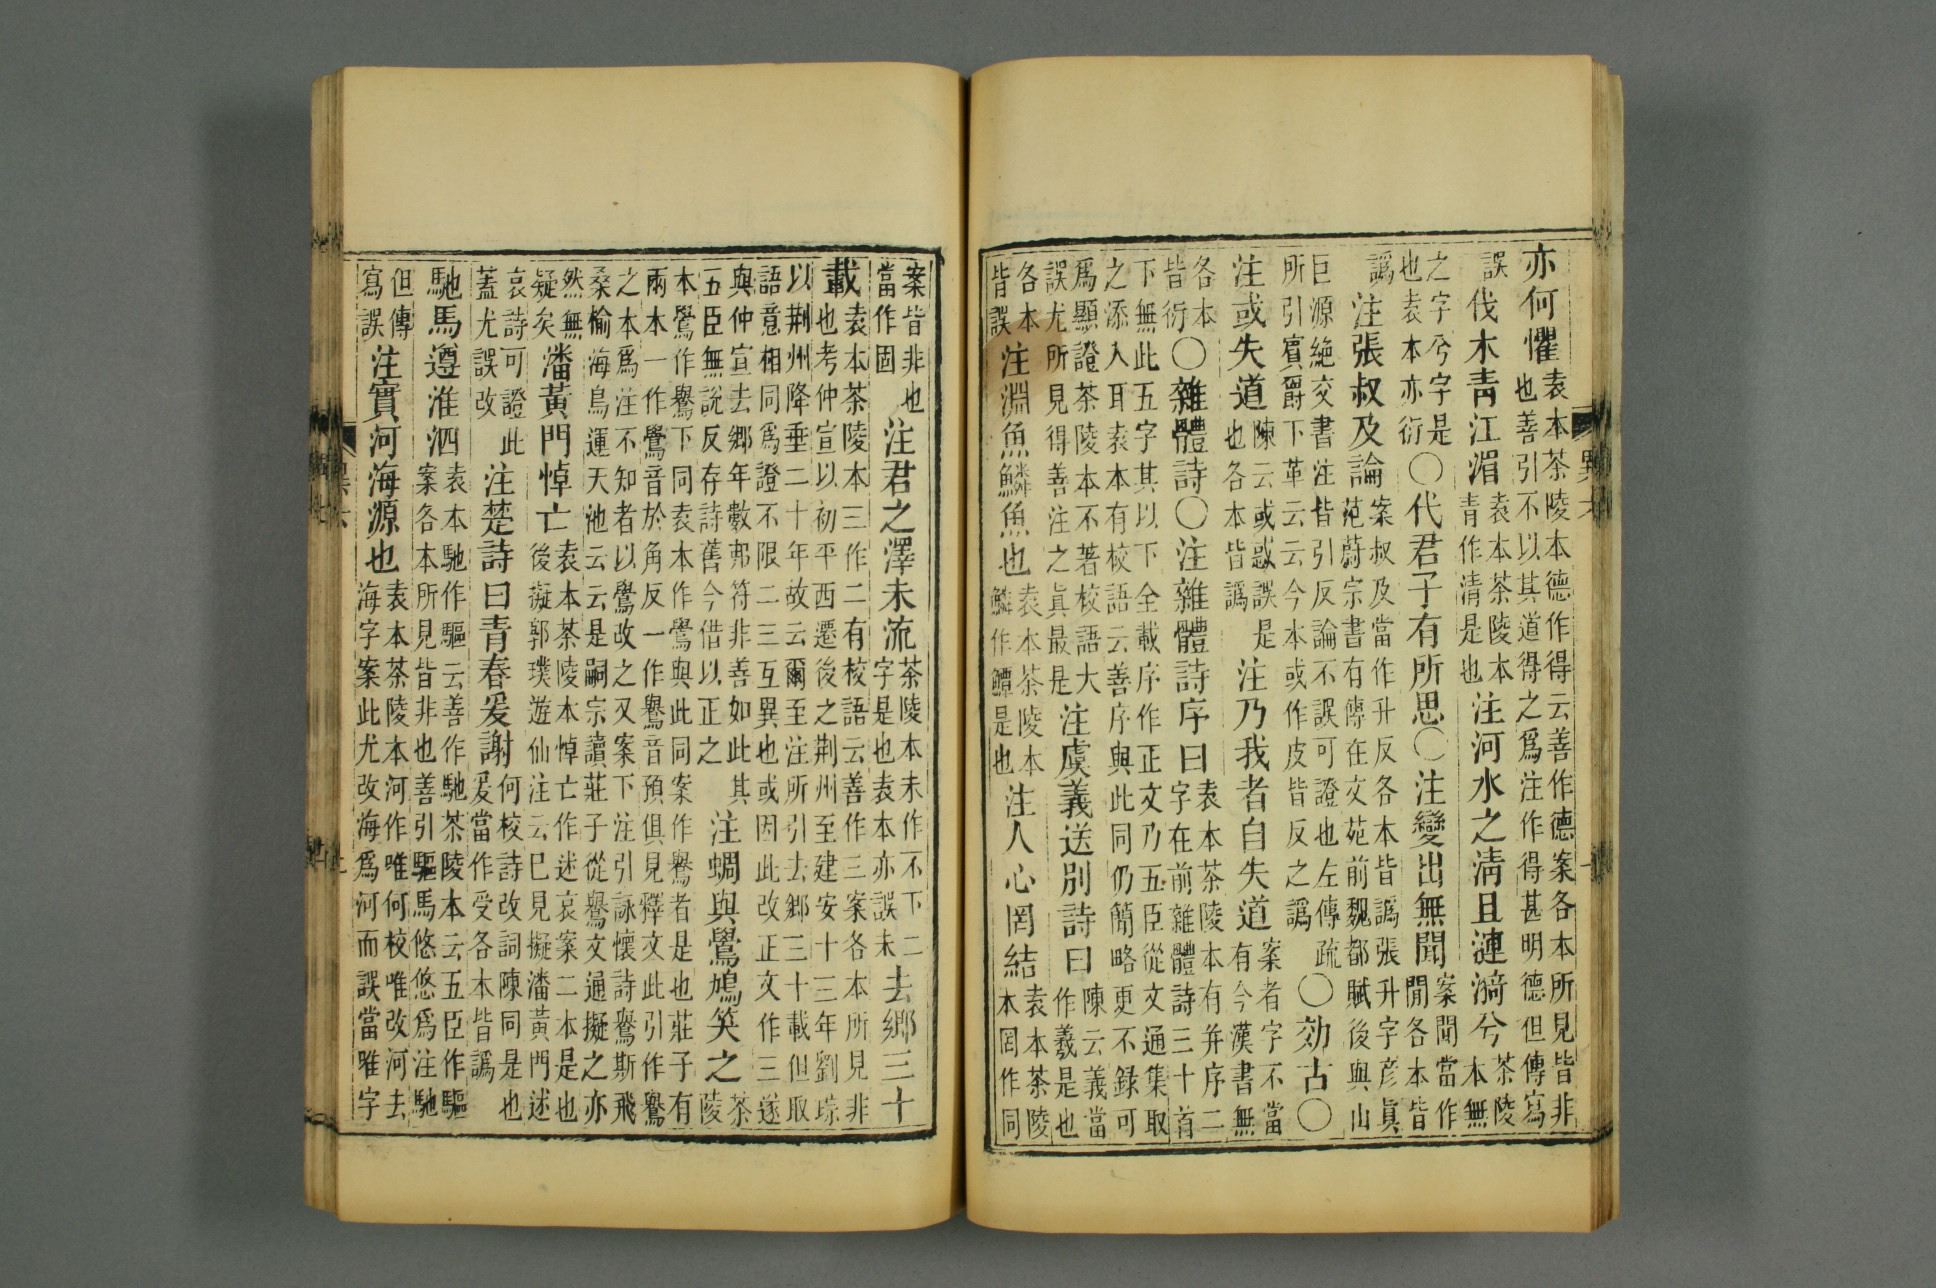 亦何懼袁本茶陵本德作得云善作德案各本所見皆非也善引不以其道得之爲注作得甚明德但傳寫
誤 伐木青江湄袁本茶陵本青作清是也 注河水之清且漣漪兮茶陵本無
之字兮字是也袁本亦衍○代君子有所思○注變出無聞案聞當作閒各本皆
譌 注張叔及論案叔及當作升反各本皆譌張升字彦眞范蔚宗書有傳在文苑前魏都賦後與山
巨源絶交書注皆引反論不誤可證也左傳疏所引賓爵下革云云今本或作皮皆反之譌○効古○
注或失道陳云或惑誤是也各本皆譌 注乃我者自失道案者字不當有今漢書無
各本皆衍○雜體詩○注雜體詩序曰袁本茶陵本有并序二字在前雜體詩三十首
下無此五字其以下全載序作正文乃五臣從文通集取之添入耳袁本有校語云善序與此同仍簡略更不録可
爲顯證茶陵本不著校語大誤尤所見得善注之眞最是 注虞義送別詩曰陳云義當作羲是也
各本皆誤 注淵魚鱗魚也袁本茶陵本鱗作鱏是也 注人心罔結袁本茶陵本罔作同
案皆非也當作固 注君之澤未流茶陵本未作不下二字是也袁本亦誤未 去鄉三十
載袁本茶陵本三作二有校語云善作三案各本所見非也考仲宣以初平西遷後之荆州至建安十三年劉琮
以荆州降垂二十年故云爾至注所引去鄉三十載但取語意相同爲證不限二三互異也或因此改正文作三遂
與仲宣去鄉年數邦符非善如此其五臣無説反存詩舊今借以正之 注蜩與鷽鳩笑之茶陵
本鷽作鸒下同袁本作鷽與此同案作鸒者是也莊子有兩本一作鷽音於角反一作鸒音預俱見釋文此引作鸒
之本爲注不知者以鷽改之又案下注引詠懷詩鸒斯飛桑榆海鳥運天池云云是嗣宗讀莊子從鸒文通擬之亦
然無疑矣 潘黃門悼亡袁本茶陵本悼亡作述哀案二本是也後擬郭璞遊仙注云已見擬潘黃門述
哀詩可證此蓋尤誤改 注楚詩曰青春爰謝何校詩改詞陳同是也爰當作受各本皆譌
馳馬遵淮泗袁本馳作驅云善作馳茶陵本云五臣作驅案各本所見皆非也善引驅馬悠悠爲注馳
但傳寫誤 注實河海源也袁本茶陵本河作唯何校唯改河去海字案此尤改海爲河而誤當唯字